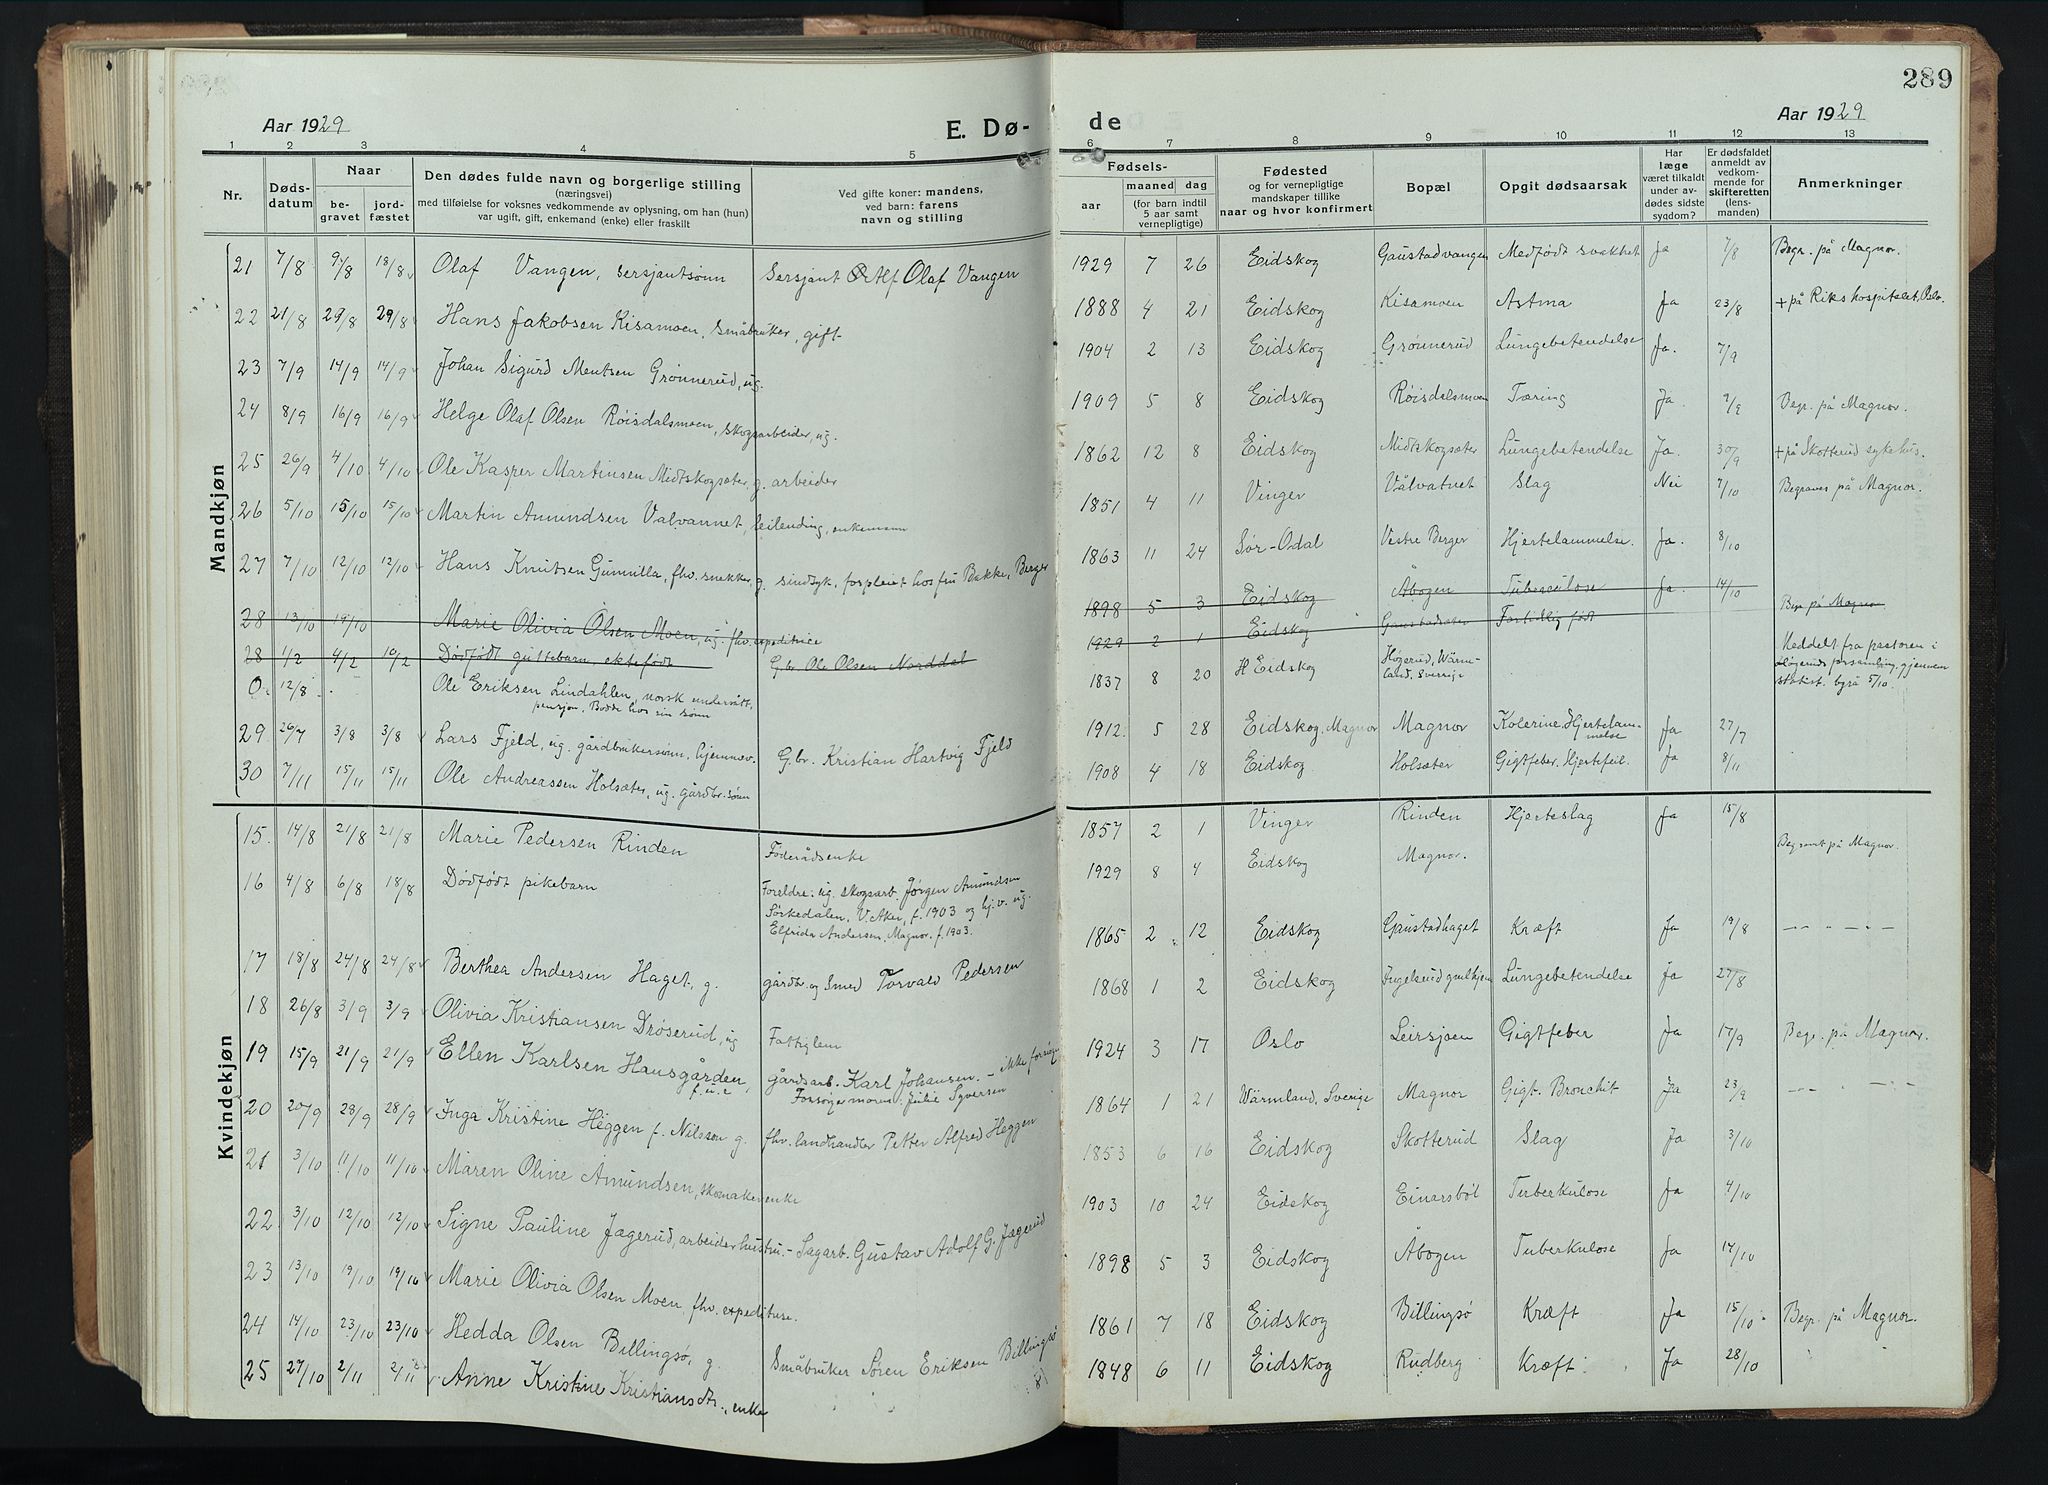 289
Aar 1929
E. Dø-
de
Aar 1929
1 2 3 4 5 6 7 8 9 10 11 12 13
Nr.
Døds-
datum
Naar
be-
gravet
jord-
fæstet
Den dødes fulde navn og borgerlige stilling
(næringsvei)
med tilføielse for voksnes vedkommende av oplysning, om han (hun)
var ugift, gift, enkemand (enke) eller fraskilt
Ved gifte koner: mandens,
ved barn: farens
navn og stilling
Fødsels-
aar
maaned
dag
(for barn indtil
5 aar samt
vernepligtige)
Fødested
og for vernepligtige
mandskaper tillike
naar og hvor konfirmert
Bopæl
Opgit dødsaarsak
Har
læge
været tilkaldt
under av-
dødes sidste
sygdom?
Er dødsfaldet
anmeldt av
vedkom-
mende for
skifteretten
(lens-
manden)
Anmerkninger
Mandkjøn
21 7/8 9/8 18/8 Olaf Vangen, sersjantsønn Sersjant Alf Olaf Vangen 1929 7 26 Eidskog Gaustadvangen Medfødt svakhet Ja 7/8 Begr. på Magnor.
22 21/8 29/8 29/8 Hans Jakobsen Kisamoen, småbruker, gift 1888 4 21 Eidskog Kisamoen Astma Ja 23/8 + på Rikshospitalet, Oslo.
23 7/9 14/9 14/9 Johan Sigurd Mentsen Grønnerud, ug. 1904 2 13 Eidskog Grønnerud Lungebetendelse Ja. 7/9
24 8/9 16/9 16/9 Helge Olaf Olsen Røisdalsmoen, skogsarbeider, ug. 1909 5 8 Eidskog Røisdalsmoen Tæring Ja. 9/9 Begr. på Magnor.
25 26/9 4/10 4/10 Ole Kasper Martinsen Midtskogsæter, g. arbeider 1862 12 8 Eidskog Midtskogsæter Lungebetendelse Ja. 30/9 + på Skotterud sykehus.
26 5/10 15/10 15/10 Martin Amundsen Valvannet, leilending, enkemann 1851 4 11 Vinger Vålvatnet Slag Nei 7/10 Begraves på Magnor.
27 7/10 12/10 12/10 Hans Knutsen Gunnilla, fhv. snekker, g. sindsyk, forpleiet hos fru Bakke, Berger 1863 11 24 Sør-Odal Vestre Berger Hjertelammelse. Ja. 8/10
28 13/10 19/10 Marie Olivia Olsen Moen, ug. fhv. expeditrice 1898 5 3 Eidskog Åbogen Tuberculose Ja. 14/10
28 1/2 4/2 19/2 Dødfødt guttebarn, ektefødt G.br. Ole Olsen Norddal 1929 2 1 Eidskog Gaustadsæter Fortidlig født Begr. på Magnor
0. 12/8 - . Ole Eriksen Lindahlen, norsk undersått,
pensjon. Bodde hos sin sønn 1837 8 20 H Eidskog Høgerud, Wärm-
land, Sverige Meddelt fra pastoren i
Høgeruds forsamling, gjennem
statist. byrå 5/10.
29 26/7 3/8 3/8 Lars Fjeld, ug. gårdbrukersønn, hjemmev. G.br. Kristian Hartvig Fjeld 1912 5 28 Eidskog, Magnor Magnor Kolerine, Hjertelam-
melse Ja 27/7
30 7/11 15/11 15/11 Ole Andreassen Holsæter, ug. gårdbr. sønn 1908 4 18 Eidskog Holsæter Gigtfeber. Hjertefeil. Ja 8/11
Kvindekjøn
15. 14/8 21/8 21/8 Marie Pedersen Rinden Føderådsenke 1857 2 1 Vinger Rinden Hjerteslag Ja 15/8
16 4/8 6/8 18/8 Dødfødt pikebarn Foreldre: ug. skogsarb. Jørgen Amundsen
Sørkedalen, V. Aker, f. 1903 og hj.v. ug.
Elfrida Andersen, Magnor. f. 1903. 1929 8 4 Eidskog Magnor. Begravet på Magnor.
17 18/8 24/8 24/8 Berthea Andersen Haget, g. gårdbr. og smed Torvald Pedersen 1865 2 12 Eidskog Gaustadhaget Kræft Ja 19/8 — „ — „ —
18 26/8 3/9 3/9 Olivia Kristiansen Drøserud, ug Fattiglem 1868 1 2 Eidskog Ingelsrud gmlhjem Lungebetendelse Ja 27/8
19 15/9 21/9 21/9 Ellen Karlsen Hansgården,
f. u. e gårdsarb. Karl Johansen. - ikke forsørger
Forsørger moren: Julie Syversen 1924 3 17 Oslo Leirsjøen Gigtfeber Ja 17/9 Begr. på Magnor.
20 20/9 28/9 28/9 Inga Kristine Heggen f. Nilsson g. fhv. landhandler Petter Alfred Heggen 1864 1 21 Wärmland, Sverige Magnor Gigt. Bronchit Ja 23/9 — „ — „ —
21 3/10 11/10 11/10 Maren Oline Amundsen, skomakerenke 1853 6 16 Eidskog Skotterud Slag Ja 3/10
22. 3/10 12/10 12/10 Signe Pauline Jagerud, arbeiderhustru. - Sagarb. Gustav Adolf G. Jægerud 1903 10 24 Eidskog Einarsbøl Tuberkulose Ja 4/10
23 13/10 19/10 19/10 Marie Olivia Olsen Moen, fhv. expeditrise. 1898 5 3 Eidskog Åbogen Tuberkulose Ja 14/10
24 14/10 23/10 23/10 Hedda Olsen Billingsø, g. Småbruker Søren Eriksen Billingsø 1861 7 18 Eidskog Billingsø Kræft Ja 15/10 Begr. på Magnor.
25 27/10 2/11 2/11 Anne Kristine Kristiansdtr., enke 1848 6 11 Eidskog Rudberg Kræft Ja 28/10